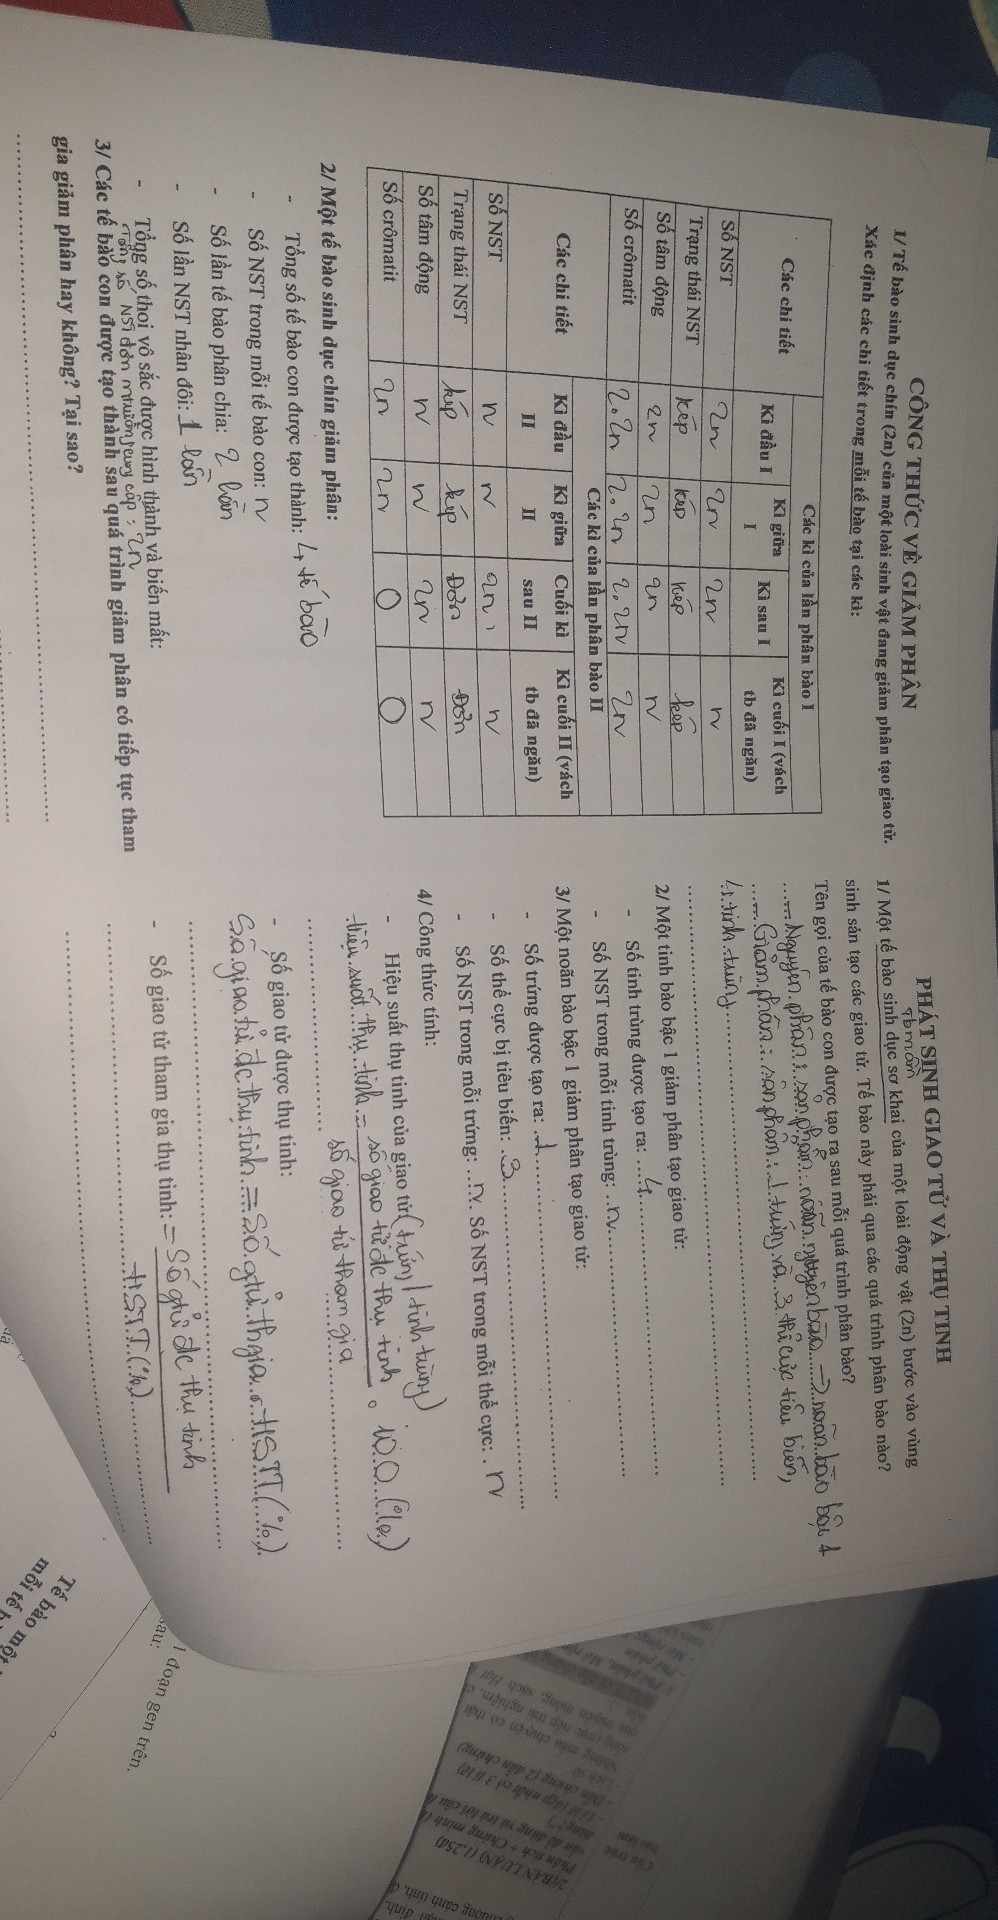 CÔNG THỨC VỀ GIẢM PHÂN
1/ Tế bào sinh dục chín (2n) của một loài sinh vật đang giảm phân tạo giao tử.
Xác định các chi tiết trong mỗi tế bào tại các kì:
Các chi tiết
Các kì của lần phân bào I
Kì đầu I
Kì giữa I
Kì sau I
Kì cuối I (vách tb đã ngăn)
Số NST 2n 2n 2n n
Trạng thái NST kép kép kép kép
Số tâm động 2n 2n 2n n
Số crômatit 2.2n 2.2n 2.2n 2n
Các chi tiết
Các kì của lần phân bào II
Kì đầu II
Kì giữa II
Cuối kì sau II
Kì cuối II (vách tb đã ngăn)
Số NST n n 2n n
Trạng thái NST kép kép Đơn Đơn
Số tâm động n n 2n n
Số crômatit 2n 2n 0 0
2/ Một tế bào sinh dục chín giảm phân:
- Tổng số tế bào con được tạo thành: 4 tế bào
- Số NST trong mỗi tế bào con: n
- Số lần tế bào phân chia: 2 lần
- Số lần NST nhân đôi: 1 lần
- Tổng số thoi vô sắc được hình thành và biến mất:
Tổng số NST đơn mtrường cung cấp: 2n
3/ Các tế bào con được tạo thành sau quá trình giảm phân có tiếp tục tham
gia giảm phân hay không? Tại sao?
PHÁT SINH GIAO TỬ VÀ THỤ TINH
Tb mầm
1/ Một tế bào sinh dục sơ khai của một loài động vật (2n) bước vào vùng
sinh sản tạo các giao tử. Tế bào này phải qua các quá trình phân bào nào?
Tên gọi của tế bào con được tạo ra sau mỗi quá trình phân bào?
- Nguyên phân: sản phẩm: noãn nguyên bào -> noãn bào bậc 1
- Giảm phân: sản phẩm: 1 trứng và 3 thể cực tiêu biến,
4 tinh trùng
2/ Một tinh bào bậc 1 giảm phân tạo giao tử:
- Số tinh trùng được tạo ra: 4
- Số NST trong mỗi tinh trùng: n
3/ Một noãn bào bậc 1 giảm phân tạo giao tử:
- Số trứng được tạo ra: 1
- Số thể cực bị tiêu biến: 3
- Số NST trong mỗi trứng: n. Số NST trong mỗi thể cực: n
4/ Công thức tính:
- Hiệu suất thụ tinh của giao tử (trứng / tinh trùng)
Hiệu suất thụ tinh = số giao tử đc thụ tinh . 100 (%)
số giao tử tham gia
- Số giao tử được thụ tinh:
Số giao tử đc thụ tinh = Số gtử th gia . HSTT (%)
- Số giao tử tham gia thụ tinh: = Số gtử đc thụ tinh
HSTT (%)
1 đoạn gen trên.
sau:
Tế bào một
mỗi tế b